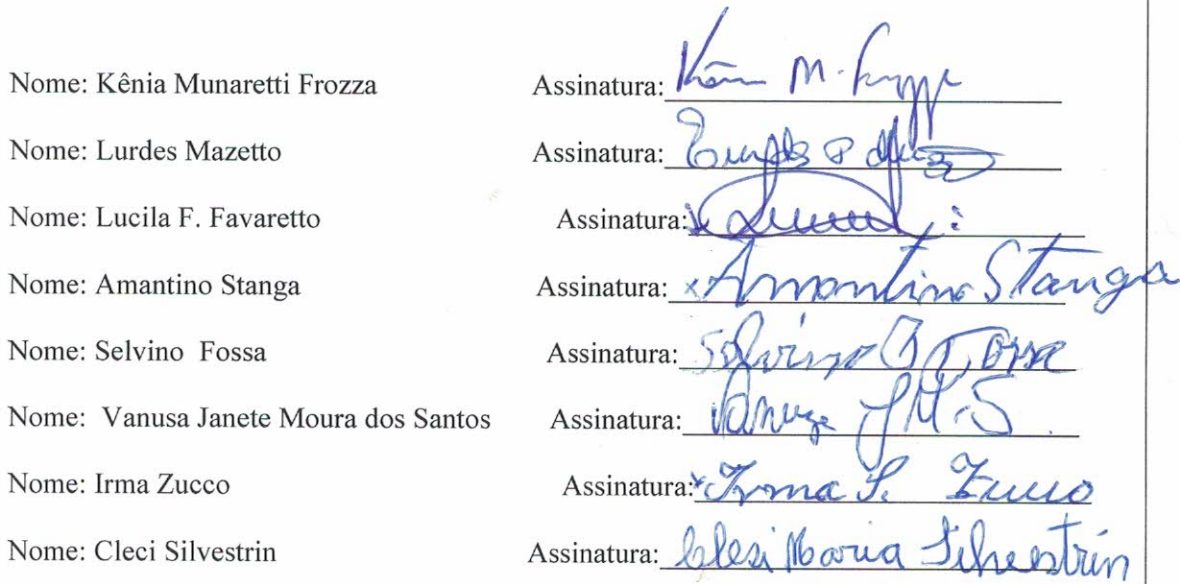 Nome: Kênia Munaretti Frozza Assinatura: Kênia M. Frozza
Nome: Lurdes Mazetto Assinatura:
Nome: Lucila F. Favaretto Assinatura: x
Nome: Amantino Stanga Assinatura: x Amantino Stanga
Nome: Selvino Fossa Assinatura: Selvino Fossa
Nome: Vanusa Janete Moura dos Santos Assinatura: Vanuza J M. S.
Nome: Irma Zucco Assinatura: x Irma S. Zucco
Nome: Cleci Silvestrin Assinatura: Clesi Maria Silvestrin